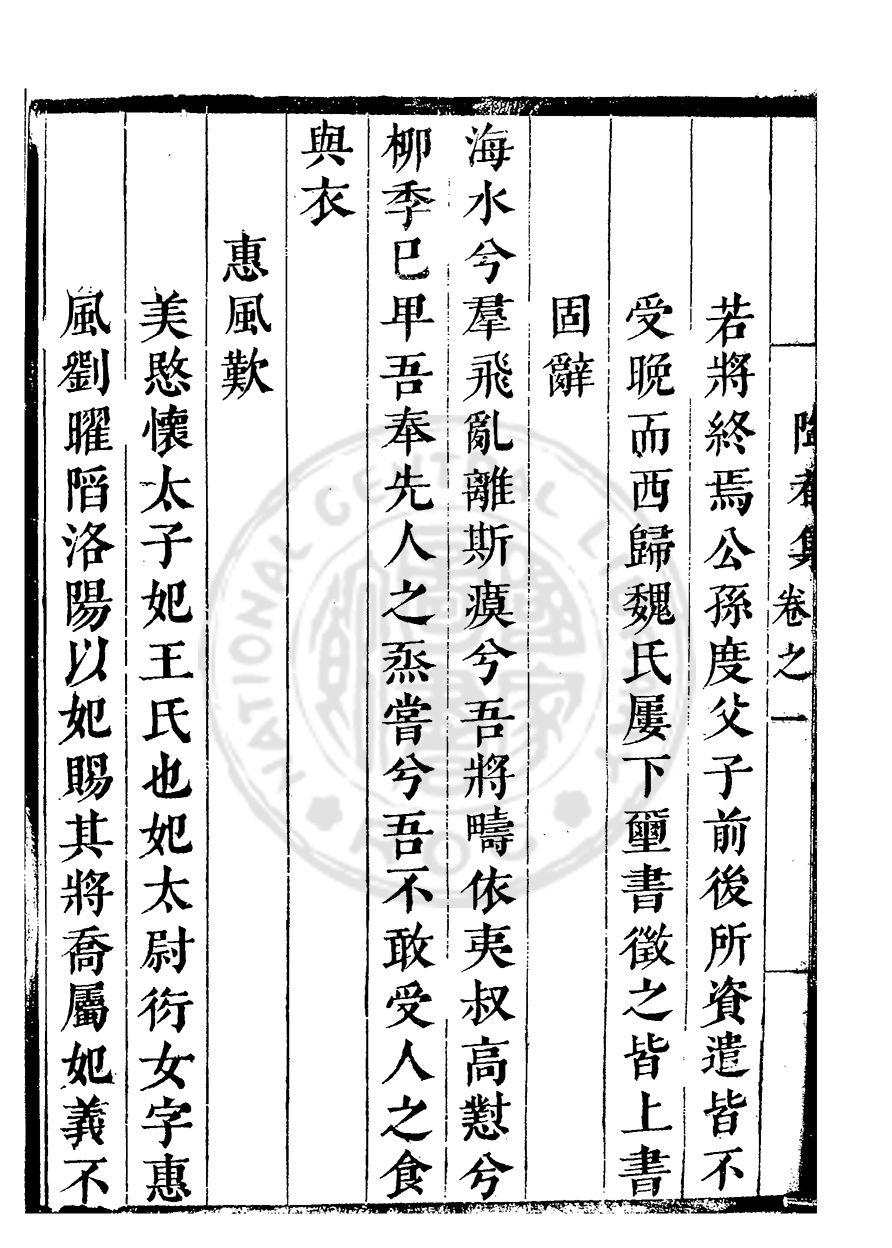 集卷之一
若將終焉公孫度父子前後所資遣皆不
受晚而西歸魏氏屢下璽書徵之皆上書
固辭
海水兮羣飛亂離斯瘼兮吾將疇依夷叔高懟兮
柳季巳卑吾奉先人之烝嘗兮吾不敢受人之食
與衣
惠風歎
美愍懷太子妃王氏也妃太尉衍女字惠
風劉曜陷洛陽以妃賜其將喬屬妃義不
NATIONAL CENTRAL LIBRARY